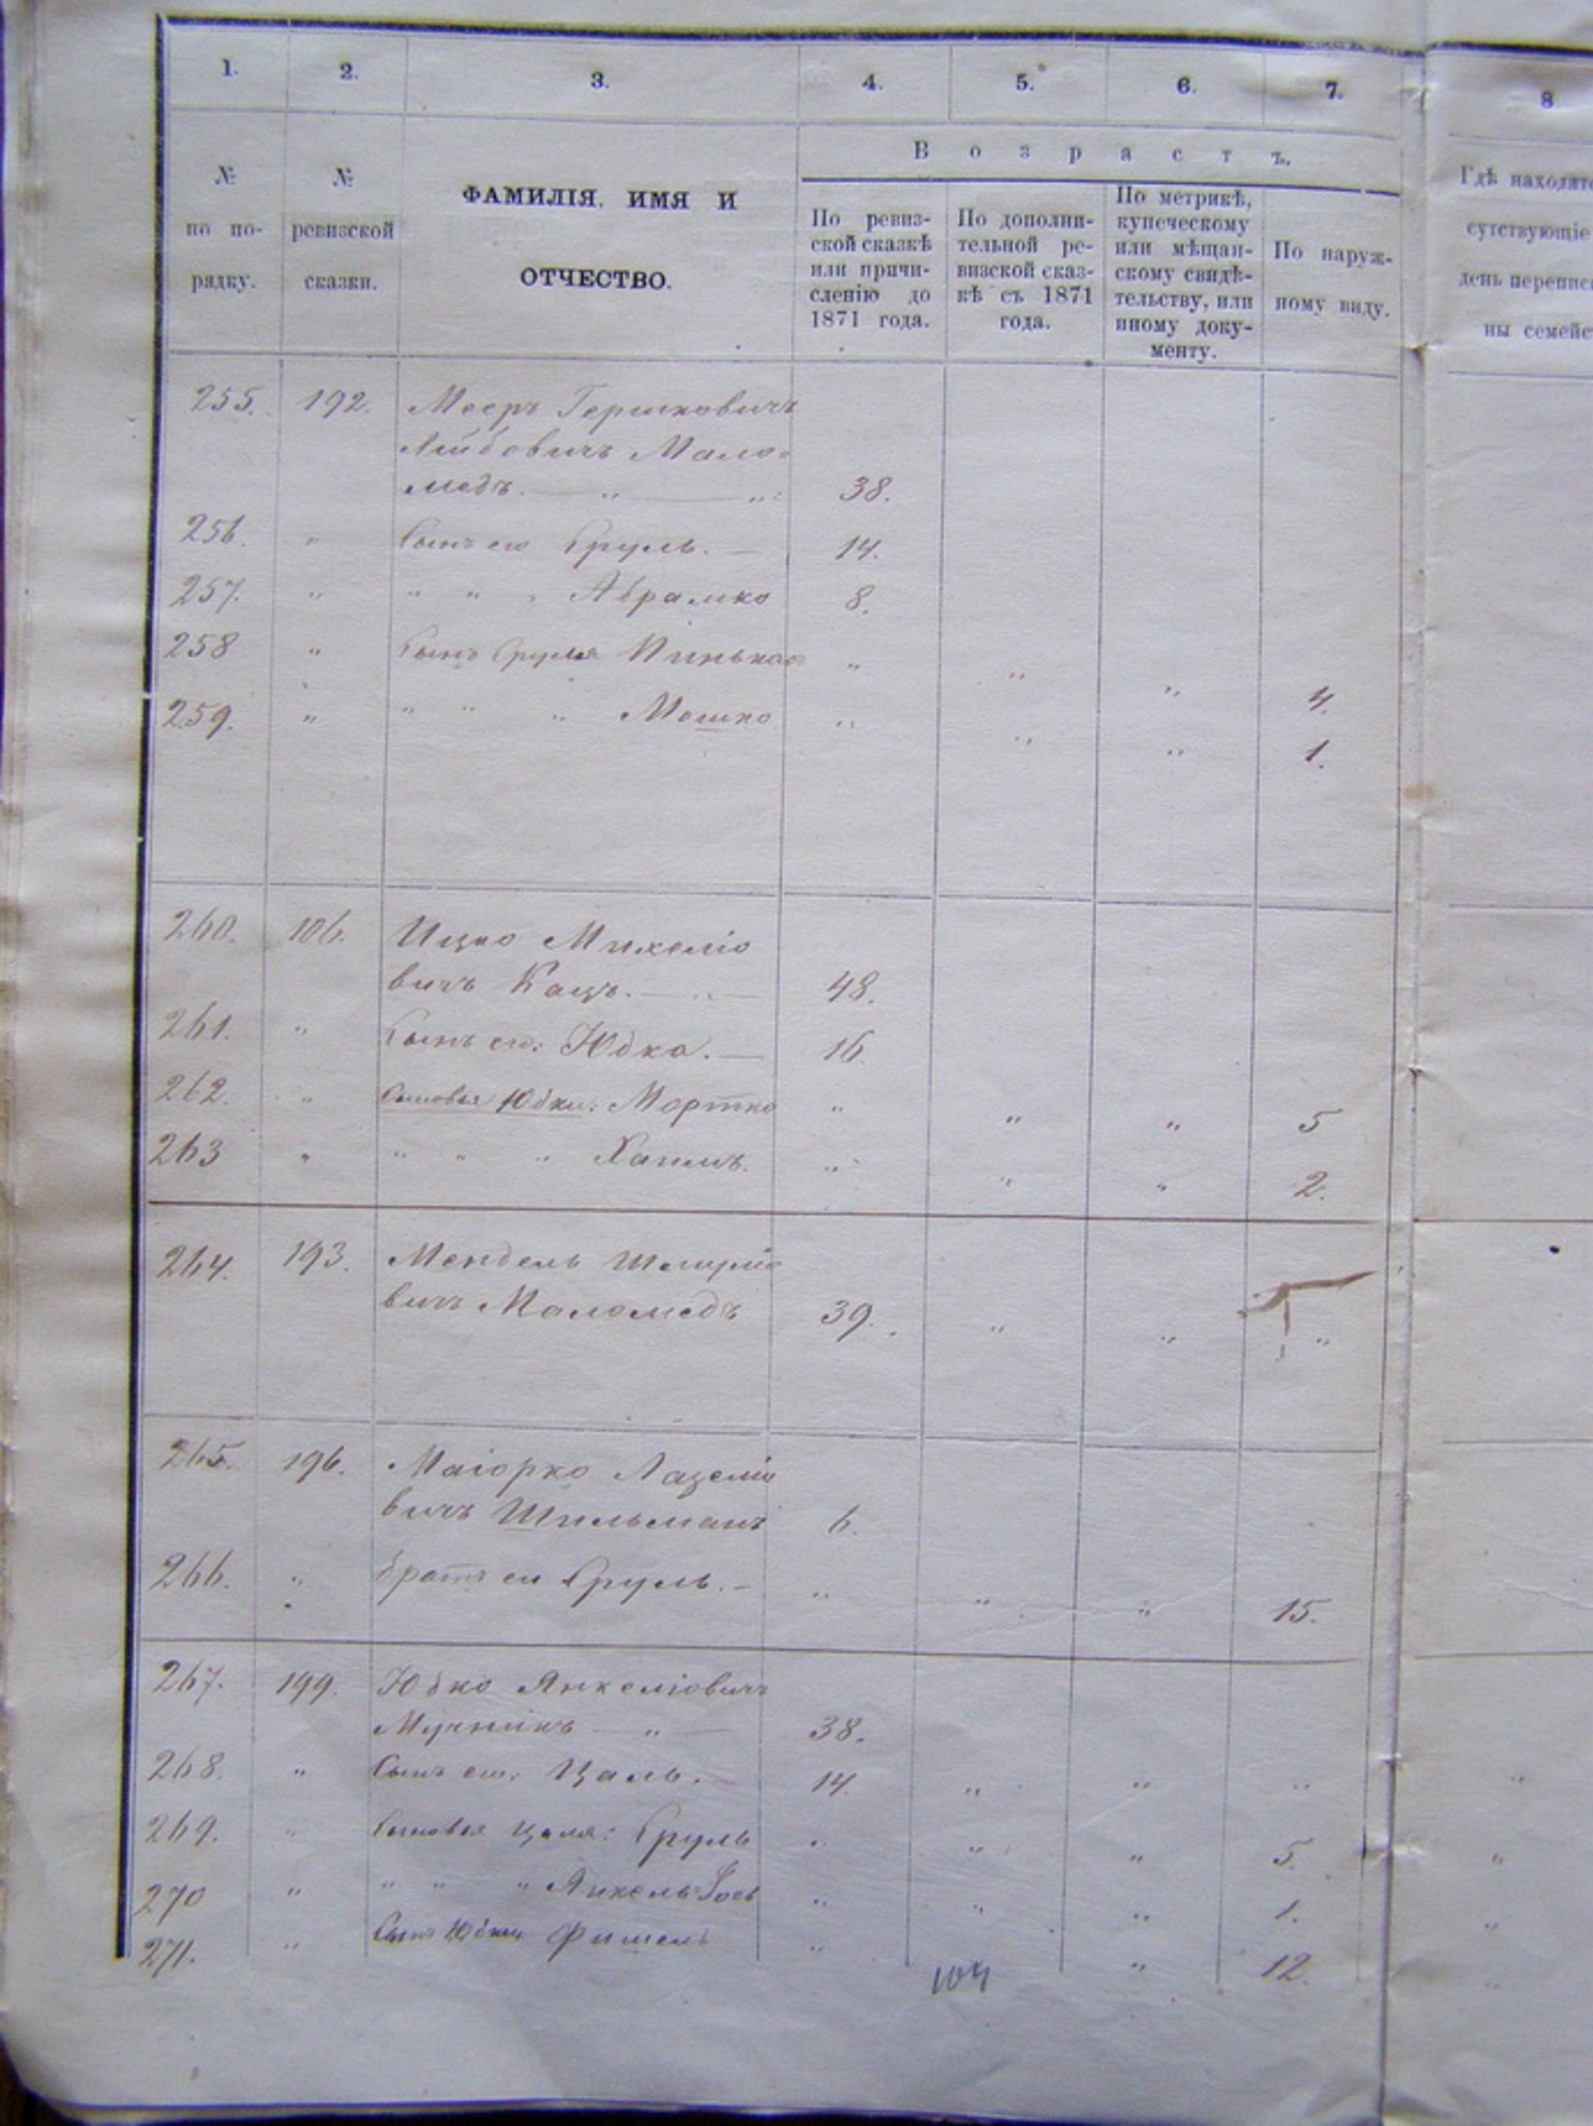 1. 2. 3. 4. 5. 6. 7. 8
В о з р а с т ъ.
№
по по-
рядку.
№
ревизской
сказки.
ФАМИЛІЯ, ИМЯ И
ОТЧЕСТВО.
По ревиз-
ской сказкѣ
или причи-
сленію до
1871 года.
По дополни-
тельной ре-
визской сказ-
кѣ съ 1871
года.
По метрикѣ,
купеческому
или мѣщан-
скому свидѣ-
тельству, или
иному доку-
менту.
По наруж-
ному виду.
Гдѣ находятс
сутствующіе
день переписи
ны семейс
255. 192. Мееръ Гершковичъ
Лейбовичъ Мало-
медъ. — „ — „ 38.
256. „ Сынъ его Сруль. — 14.
257. „ „ „ „ Абрамко 8.
258 „ Сынъ Сруля Пинькас „ „ „ 4.
259. „ „ „ „ Мошко „ „ „ 1.
260. 106. Ицко Михеліо
вичъ Кацъ. — „ — 48.
261. „ Сынъ его: Юдка. — 16.
262. „ Сыновья Юдки: Мортко „ „ „ 5
263 „ „ „ „ Хаимъ. „ „ „ 2.
264. 193. Мендель Шмуліо
вичъ Маломедъ 39. „ „ „
265. 196. Маіорко Лазеліо
вичъ Шпильманъ 6.
266. „ братъ его Сруль. — „ „ „ 15.
267. 199. Юдко Янкеліовичъ
Мучникъ — „ — 38.
268. „ Сынъ его: Цаль. — 14. „ „ „ „
269. „ Сыновья Цаля: Сруль „ „ „ 5. „
270 „ „ „ „ Янкель „ „ „ 1. „
271. „ Сынъ Юдки Фишель „ „ 12. „
104